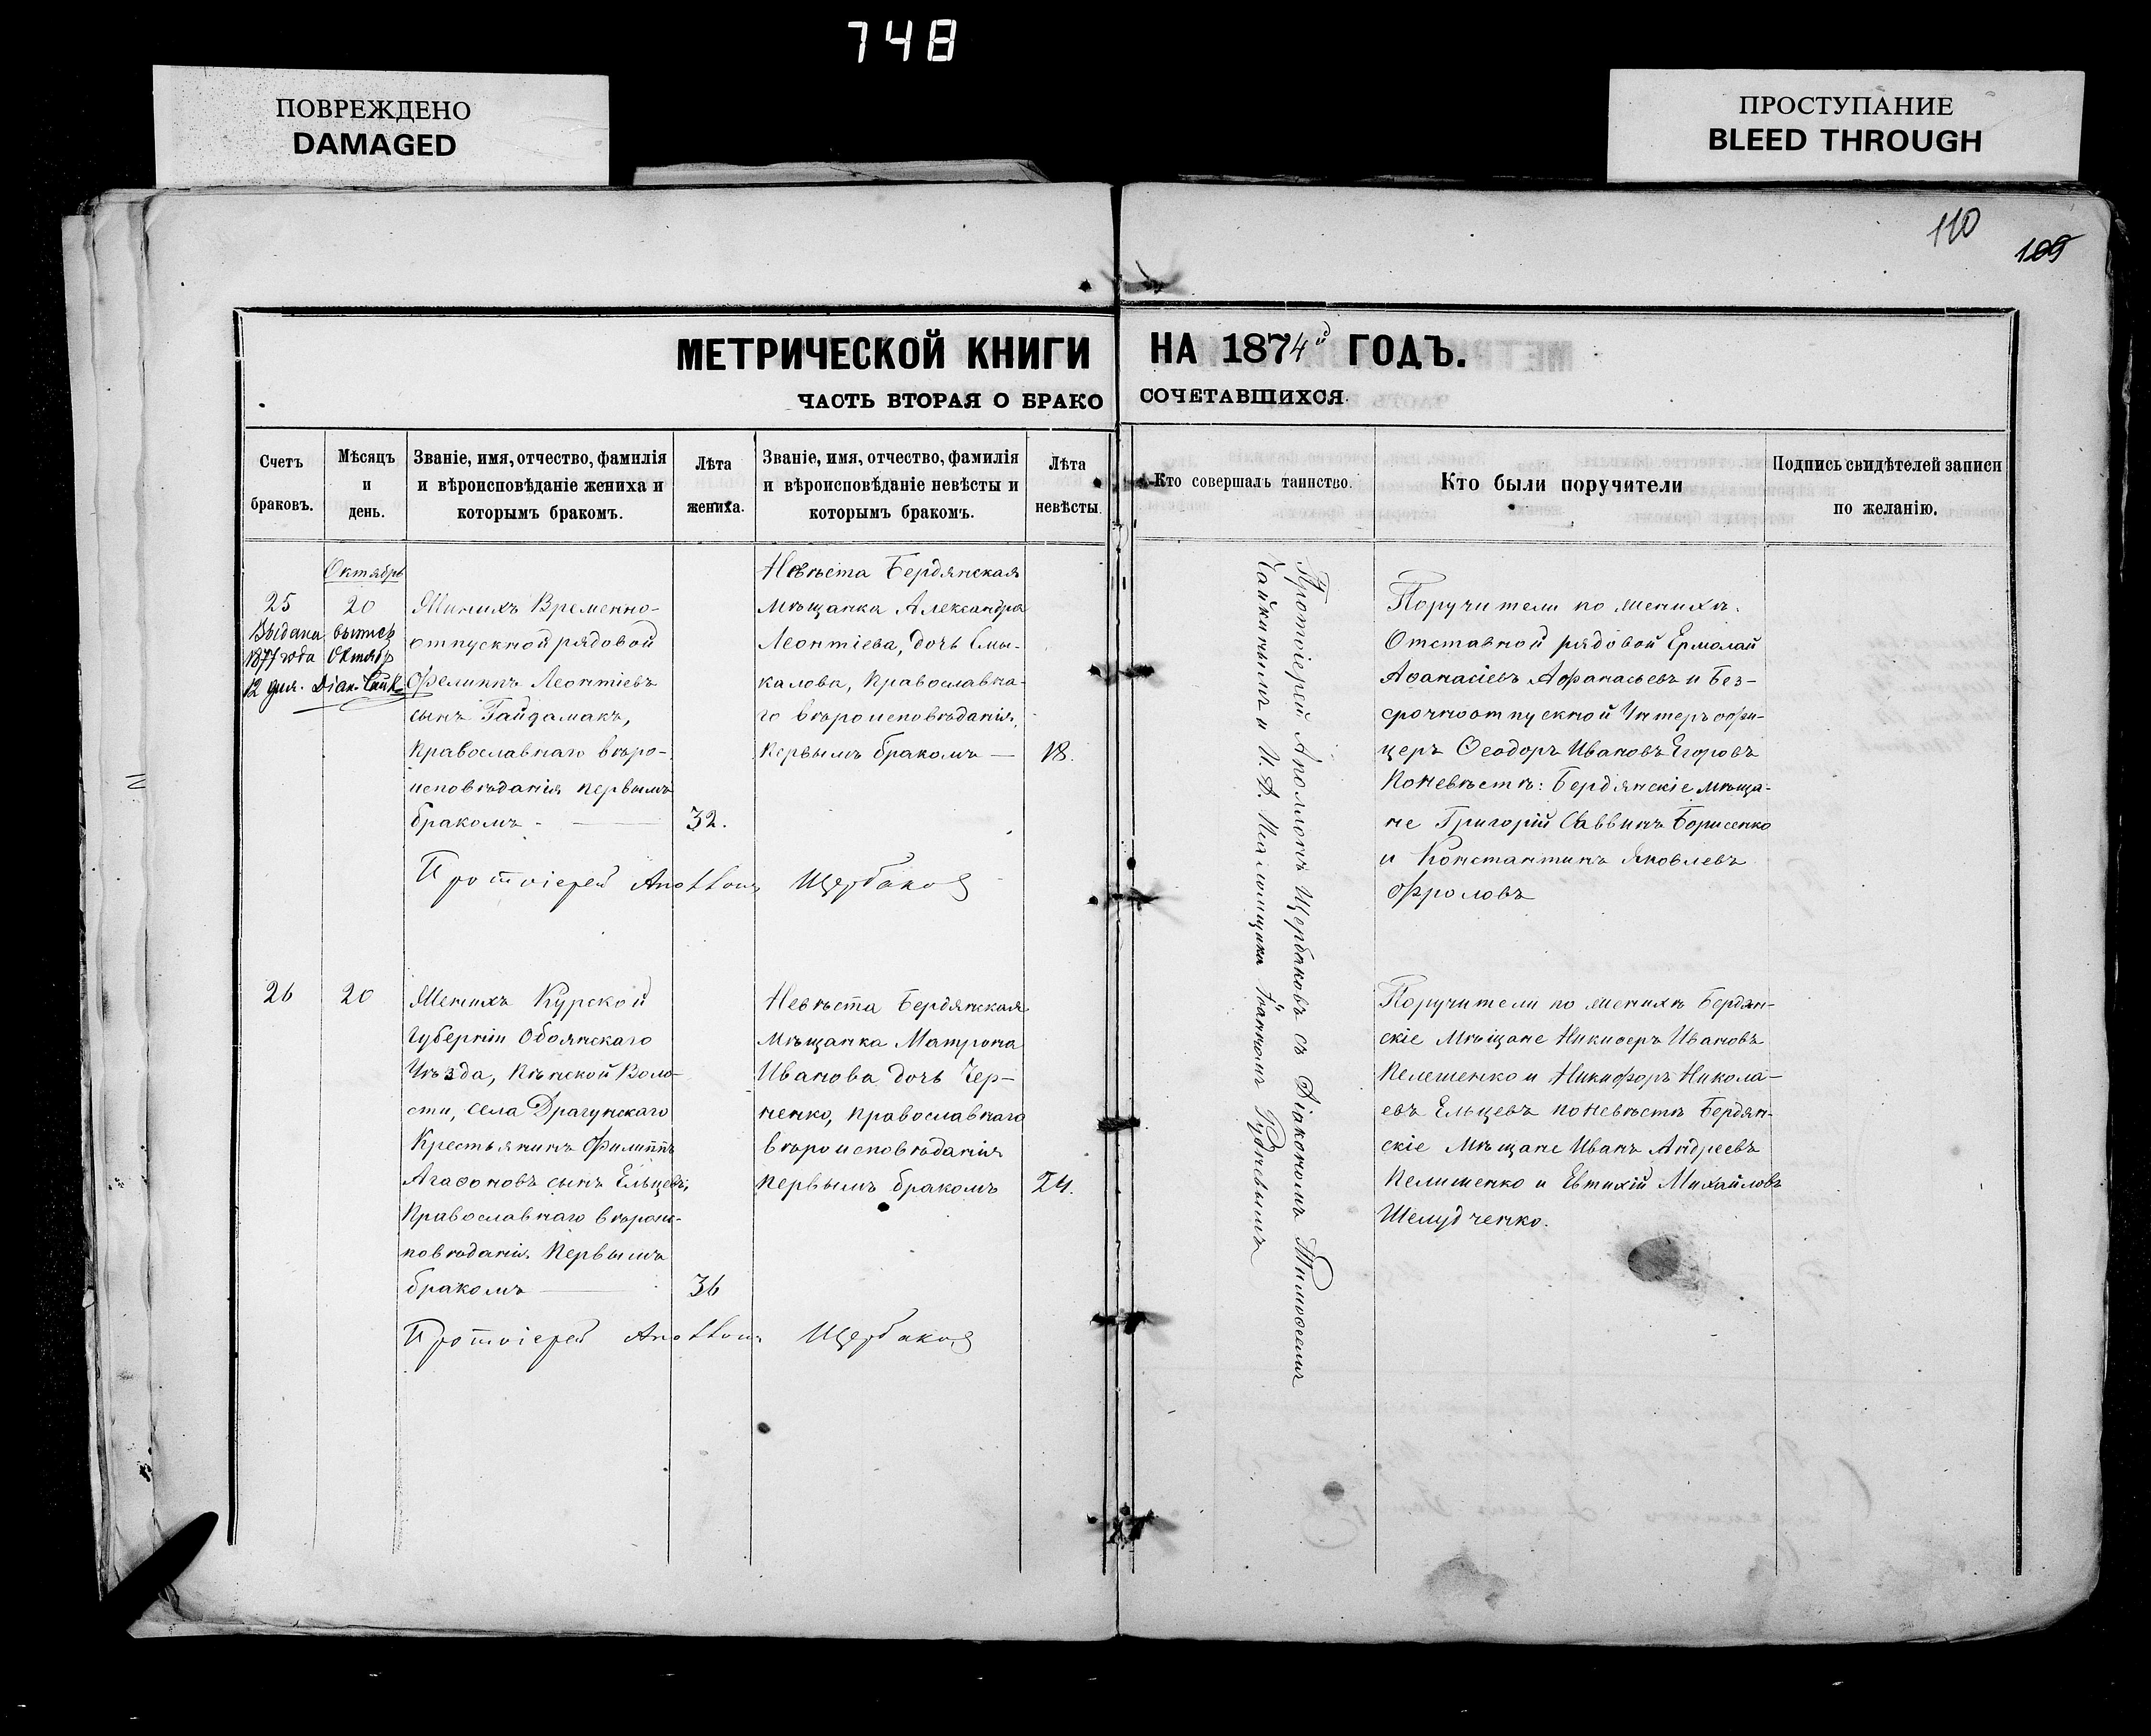 748
ПОВРЕЖДЕНО
DAMAGED
ПРОСТУПАНИЕ
BLEED THROUGH
110
109
МЕТРИЧЕСКОЙ КНИГИ НА 1874й ГОДЪ.
ЧАСТЬ ВТОРАЯ О БРАКОСОЧЕТАВШИХСЯ.
Счетъ
браковъ.
Мѣсяцъ
и
день.
Званіе, имя, отчество, фамилія
и вѣроисповѣданіе жениха и
которымъ бракомъ.
Лѣта
жениха.
Званіе, имя, отчество, фамилія
и вѣроисповѣданіе невѣсты и
которымъ бракомъ.
Лѣта
невѣсты.
Кто совершалъ таинство.
Кто были поручители
Подпись свидѣтелей записи
по желанію.
Октябрь
25
20
Выдана выпись
1877 года Октябр
12 дня. Діак.
Женихъ Временно-
отпускной рядовой
Филиппъ Леонтіевъ
сынъ Гайдамакъ,
Православнаго вѣро-
исповѣданія первымъ
бракомъ -
32.
Невѣста Бердянская
мѣщанка Александра
Леонтіева, дочь Смы-
калова, Православна-
го вѣроисповѣданія,
первымъ бракомъ —
18.
Протоіерей Аполлонъ Щербаковъ
Протоіерей Аполлонъ Щербаковъ съ Діакономъ Тимофеемъ
Чайкинымъ и И. Д. Псаломщика Іоанномъ Рудневымъ
Поручители по женихѣ:
Отставной рядовой Ермолай
Аѳанасіевъ Афанасьевъ и Без-
срочноотпускной Унтеръ офи-
церъ Ѳеодоръ Ивановъ Егоровъ
По невѣстѣ: Бердянскіе мѣща-
не Григорій Саввинъ Борисенко
и Константинъ Яковлевъ
Фроловъ
26
20
Женихъ Курской
Губерніи Обоянскаго
Уѣзда, Пѣнской Воло-
сти, села Драгунскаго
Крестьянинъ Филиппъ
Агаѳоновъ сынъ Ельцевъ,
Православнаго вѣроис-
повѣданія. Первымъ
бракомъ —
36
Невѣста Бердянская
Мѣщанка Матрона
Иванова дочь Чер-
ненко, православнаго
вѣроисповѣданія
первымъ бракомъ
24.
Протоіерей Аполлонъ Щербаковъ
Поручители по женихѣ Бердян-
скіе Мѣщане Никиѳеръ Ивановъ
Пелешенко и Никифоръ Никола-
евъ Ельцевъ по невѣстѣ Бердян-
скіе Мѣщане Иванъ Андреевъ
Пелишенко и Евтихій Михайловъ
Шелудченко.